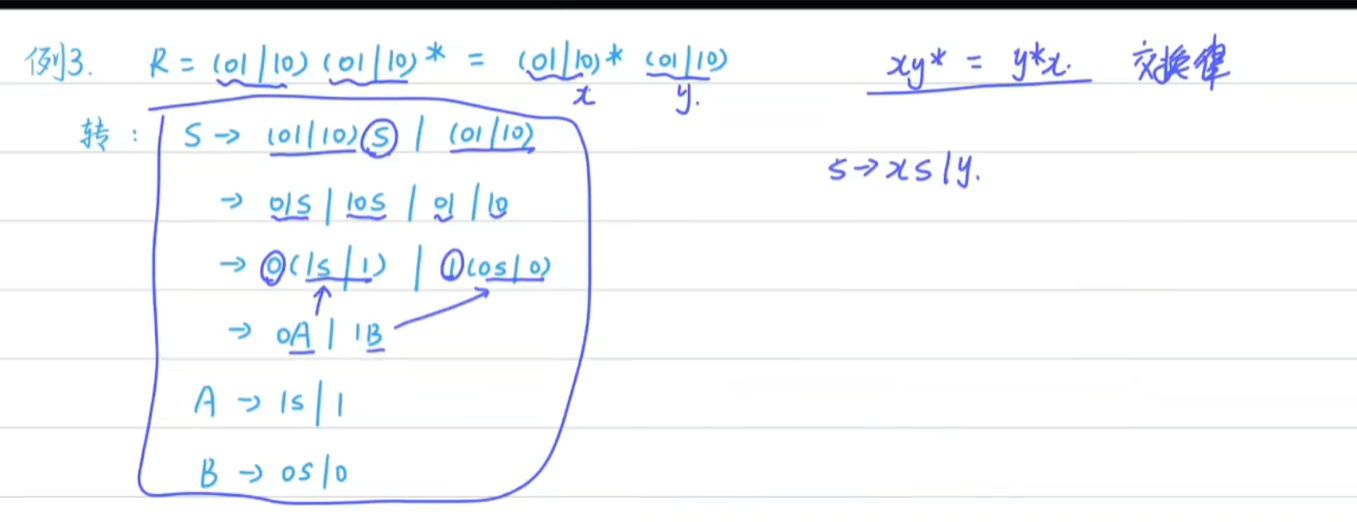 例3. R = (01|10) (01|10)* = (01|10)* (01|10) xy* = y*x. 交换律
x y.
转: S → (01|10)S | (01|10)
S→xS|y.
→ 01S | 10S | 01 | 10
→ 0(1S|1) | 1(0S|0)
→ 0A | 1B
A → 1S | 1
B → 0S | 0